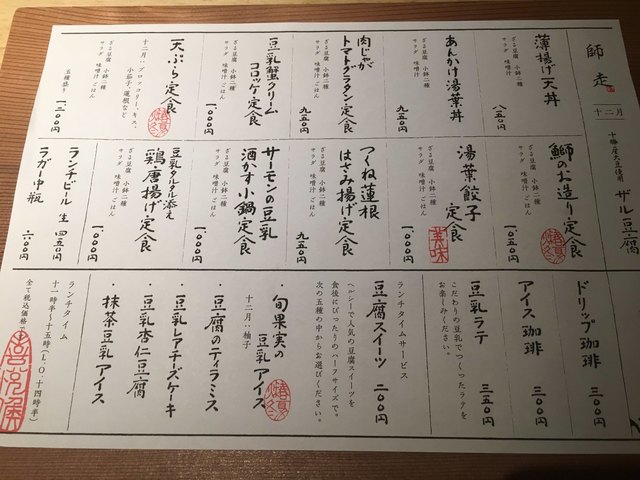 師走
十二月
十勝産大豆使用
ザル豆腐
薄揚げ天丼
ざる豆腐 小鉢二種
サラダ 味噌汁
八五〇円
あんかけ湯葉丼
ざる豆腐 小鉢二種
サラダ 味噌汁
九五〇円
肉じゃが
トマトグラタン定食
ざる豆腐 小鉢二種
サラダ 味噌汁 ごはん
九五〇円
豆乳蟹クリーム
コロッケ定食
ざる豆腐 小鉢二種
サラダ 味噌汁 ごはん
一〇〇〇円
天ぷら定食
十二月：ブロッコリー、キス、
小茄子、蓮根など
ざる豆腐 小鉢二種
サラダ 味噌汁 ごはん
五種盛り
一三〇〇円
鰤のお造り定食
ざる豆腐 小鉢二種
サラダ 味噌汁 ごはん
一〇五〇円
湯葉餃子
定食
美味
ざる豆腐 小鉢二種
サラダ 味噌汁 ごはん
一〇〇〇円
つくね蓮根
はさみ揚げ定食
ざる豆腐 小鉢二種
サラダ 味噌汁 ごはん
九五〇円
サーモンの豆乳
酒かす小鍋定食
ざる豆腐 小鉢二種
サラダ 味噌汁 ごはん
一〇〇〇円
豆乳タルタル添え
鶏唐揚げ定食
ざる豆腐 小鉢二種
サラダ 味噌汁 ごはん
一〇〇〇円
ランチビール 生 四五〇円
ラガー中瓶 六〇〇円
ドリップ珈琲 三〇〇円
アイス珈琲 三〇〇円
豆乳ラテ 三五〇円
こだわりの豆乳でつくったラテを
お楽しみください。
ランチタイムサービス
豆腐スイーツ 二〇〇円
ヘルシーで人気の豆腐スイーツを
食後にぴったりのハーフサイズで。
次の五種の中からお選びください。
・旬果実の
豆乳アイス
十二月：柚子
・豆腐のティラミス
・豆乳レアチーズケーキ
・豆乳杏仁豆腐
・抹茶豆乳アイス
ランチタイム
十一時半〜十五時（L.O.十四時半）
全て税込価格